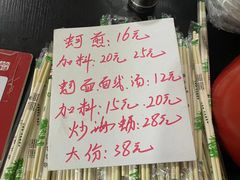 蚵煎：16元
加料：20元 25元
蚵面面线汤：12元
加料：15元、20元
炒海蛎：28元
大份：38元